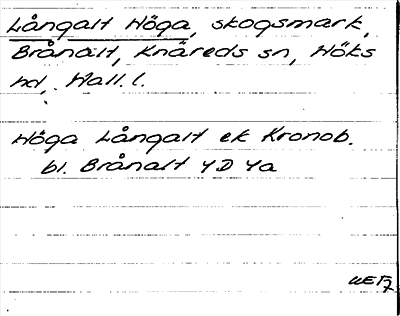 Långalt Höga, skogsmark,
Brånalt, Knäreds sn, Höks
hd, Hall. l.
Höga Långalt ek Kronob.
bl. Brånalt 4D 4a